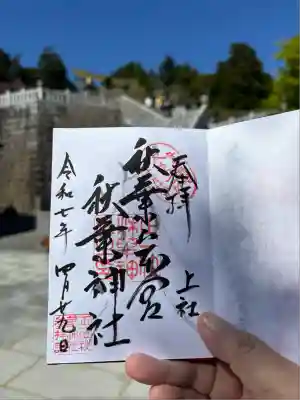 奉拝
上社
秋葉山本宮
秋葉神社
令和七年 四月十九日